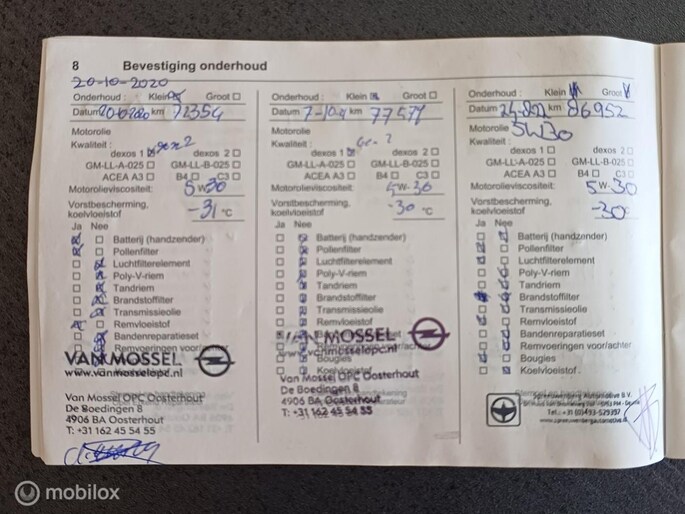 8 Bevestiging onderhoud
20-10-2020
Onderhoud : Klein Groot
Datum km 72354
Motorolie
Kwaliteit : gen2
dexos 1 dexos 2
GM-LL-A-025 GM-LL-B-025
ACEA A3 B4 C3
Motorolieviscositeit: 5W30
Vorstbescherming, koelvloeistof -31 °C
Ja Nee
Batterij (handzender)
Pollenfilter
Luchtfilterelement
Poly-V-riem
Tandriem
Brandstoffilter
Transmissieolie
Remvloeistof
Bandenreparatieset
Remvoeringen voor/achter
VAN MOSSEL
www.vanmosselopc.nl
Van Mossel OPC Oosterhout
De Boedingen 8
4906 BA Oosterhout
T: +31 162 45 54 55
Onderhoud : Klein Groot
Datum km
Motorolie
Kwaliteit :
dexos 1 dexos 2
GM-LL-A-025 GM-LL-B-025
ACEA A3 B4 C3
Motorolieviscositeit:
Vorstbescherming, koelvloeistof -30 °C
Ja Nee
Batterij (handzender)
Pollenfilter
Luchtfilterelement
Poly-V-riem
Tandriem
Brandstoffilter
Transmissieolie
Remvloeistof
VAN MOSSEL
www.vanmosselopc.nl
Bougies
Koelvloeistof
Van Mossel OPC Oosterhout
De Boedingen 8
4906 BA Oosterhout
T: +31 162 45 54 55
Onderhoud : Klein Groot
Datum km 86952
Motorolie 5W30
Kwaliteit :
dexos 1 dexos 2
GM-LL-A-025 GM-LL-B-025
ACEA A3 B4 C3
Motorolieviscositeit: 5W-30
Vorstbescherming, koelvloeistof -30°C
Ja Nee
Batterij (handzender)
Pollenfilter
Luchtfilterelement
Poly-V-riem
Tandriem
Brandstoffilter
Transmissieolie
Remvloeistof
Bandenreparatieset
Remvoeringen voor/achter
Bougies
Koelvloeistof
Spreeuwenberg Automotive B.V.
Tel.: +31 (0)493-529397
www.spreeuwenbergautomotive.nl
mobilox